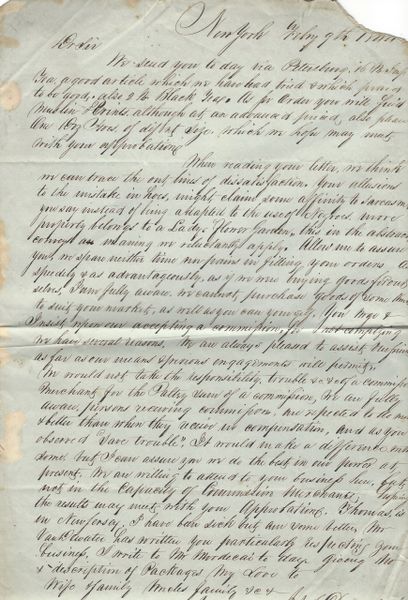 New York Feby 9th
Dr Sir
We send you to day via Petersburg, 16 lb
Tea, a good article which we have had tried & which proved
to be good. also 2 lb Black Tea. As pr Order you will find
Muslin & Prints although at an advanced price, also please
one Iron of size which we hope may meet
with your approbation.
When reading your letter, we think
we can trace the out lines of dissatisfaction. Your allusions
to the mistake in hoes, might claim some affinity to Sarcasm,
you say instead of being adapted to the use of Negroes more
property belongs to a Ladys flower Garden, this in the abstract
conveys a meaning we reluctantly apply. Allow me to assure
you, we spare neither time nor pains in filling your orders as
speedily & as advantageously, as if we were buying goods for our
selves. I am fully aware, we cannot purchase goods of some kinds
to suit your market, as well as you can yourself. You urge &
Insist upon our accepting a commission, for not complying
we have several reasons. We are always pleased to assist
as far as our means & previous engagements will permit,
We would not take the responsibility, trouble &c &c of a commission
Merchant for the Paltry sum of a commission, We are fully
aware, persons receiving commission, are expected to do more
& better than when they receive no compensation, and as you
observed "save trouble" It would make a difference with
some. but I can assure you we do the best in our power at
present. We are willing to attend to your business here, but
not in the capacity of Commission Merchants, hoping
the results may meet with your Approbation. Thomas, is
in New Jersey, I have been sick but am some better, Mr
has written you particularly respecting your
business. I write to Mr Mordecai to day. giving
& description of Packages My Love to
Wife & family Uncles family &c &